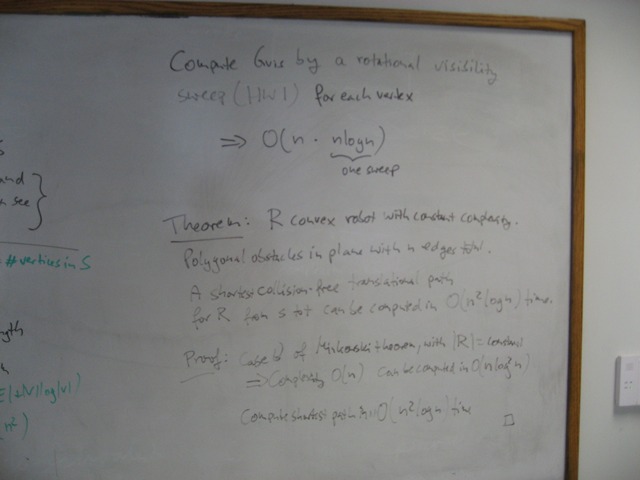 s
and
n see
# vertices in S
ngth
E|+|V|log|V|)
n²)
Compute Gvis by a rotational visibility
sweep (HW1) for each vertex
⇒ O(n · nlogn)
one sweep
Theorem: R convex robot with constant complexity.
Polygonal obstacles in plane with n edges total.
A shortest collision-free translational path
for R from s to t can be computed in O(n² log n) time.
Proof: Case b of Minkowski theorem, with |R| = constant
⇒ Complexity O(n) can be computed in O(n log² n)
Compute shortest path in O(n² log n) time □